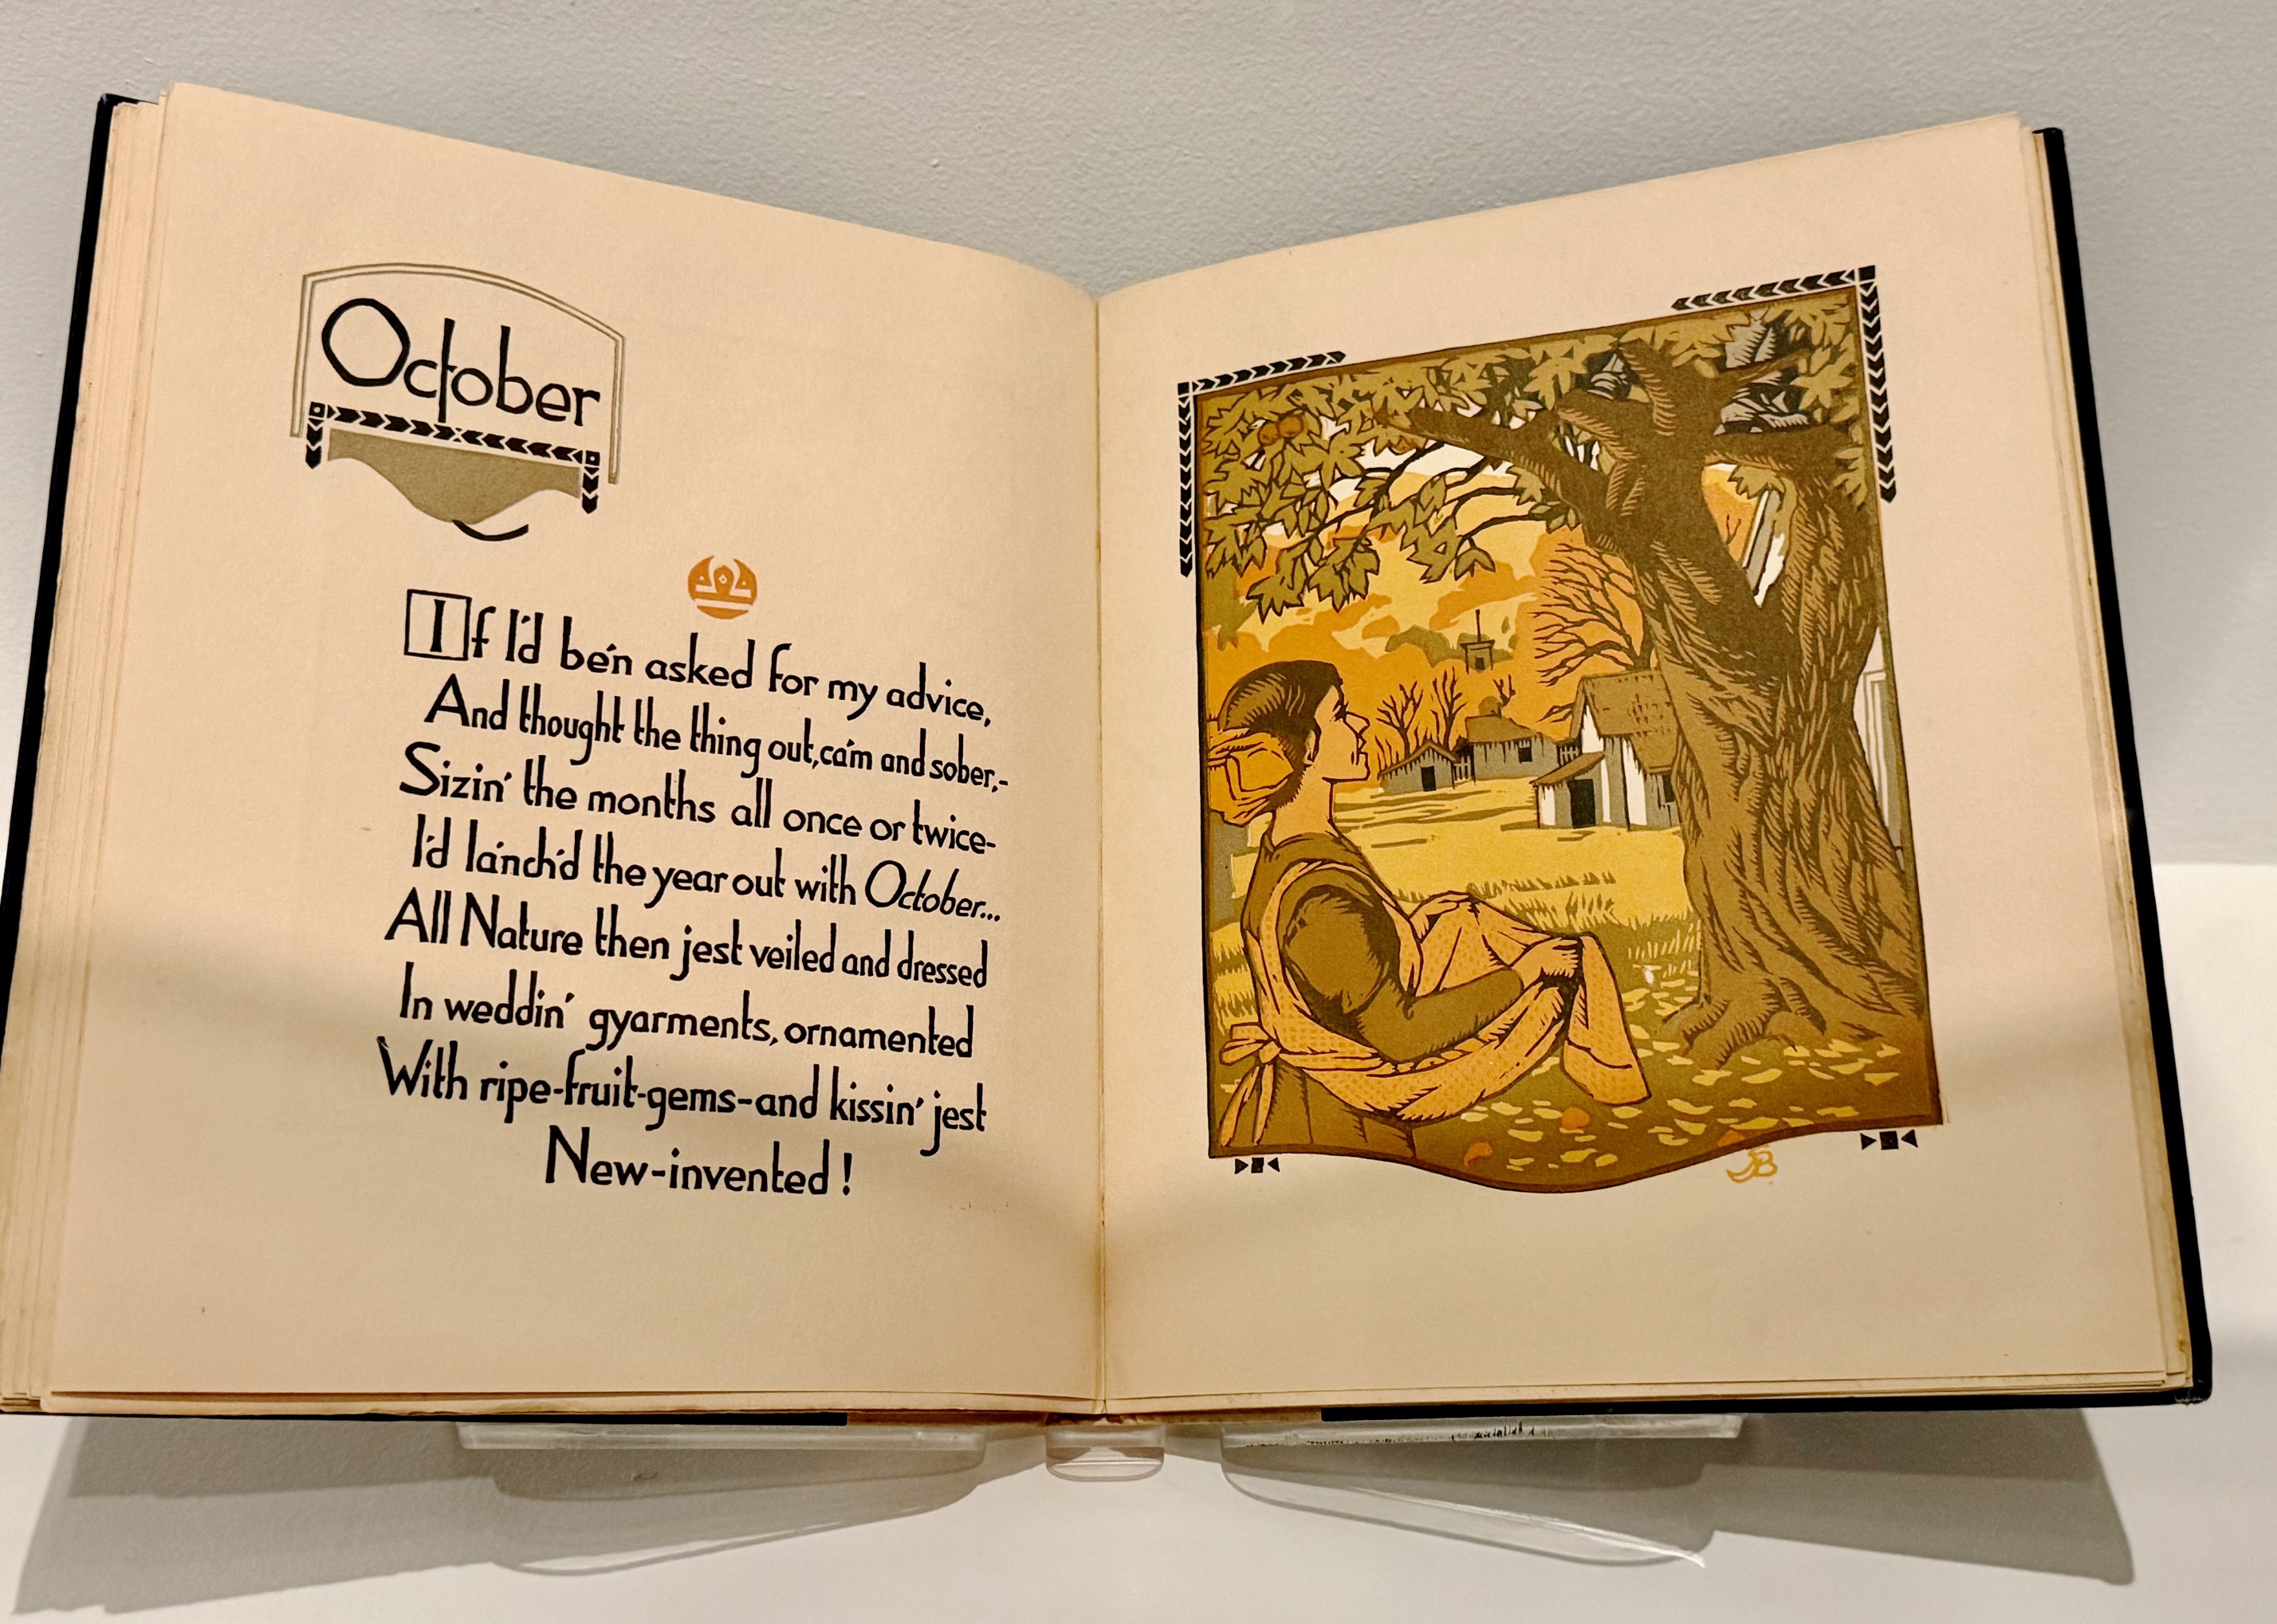 October
If I'd be'n asked for my advice,
And thought the thing out, ca'm and sober,-
Sizin' the months all once or twice-
I'd la'nch'd the year out with October...
All Nature then jest veiled and dressed
In weddin' gyarments, ornamented
With ripe-fruit-gems-and kissin' jest
New-invented!
JB